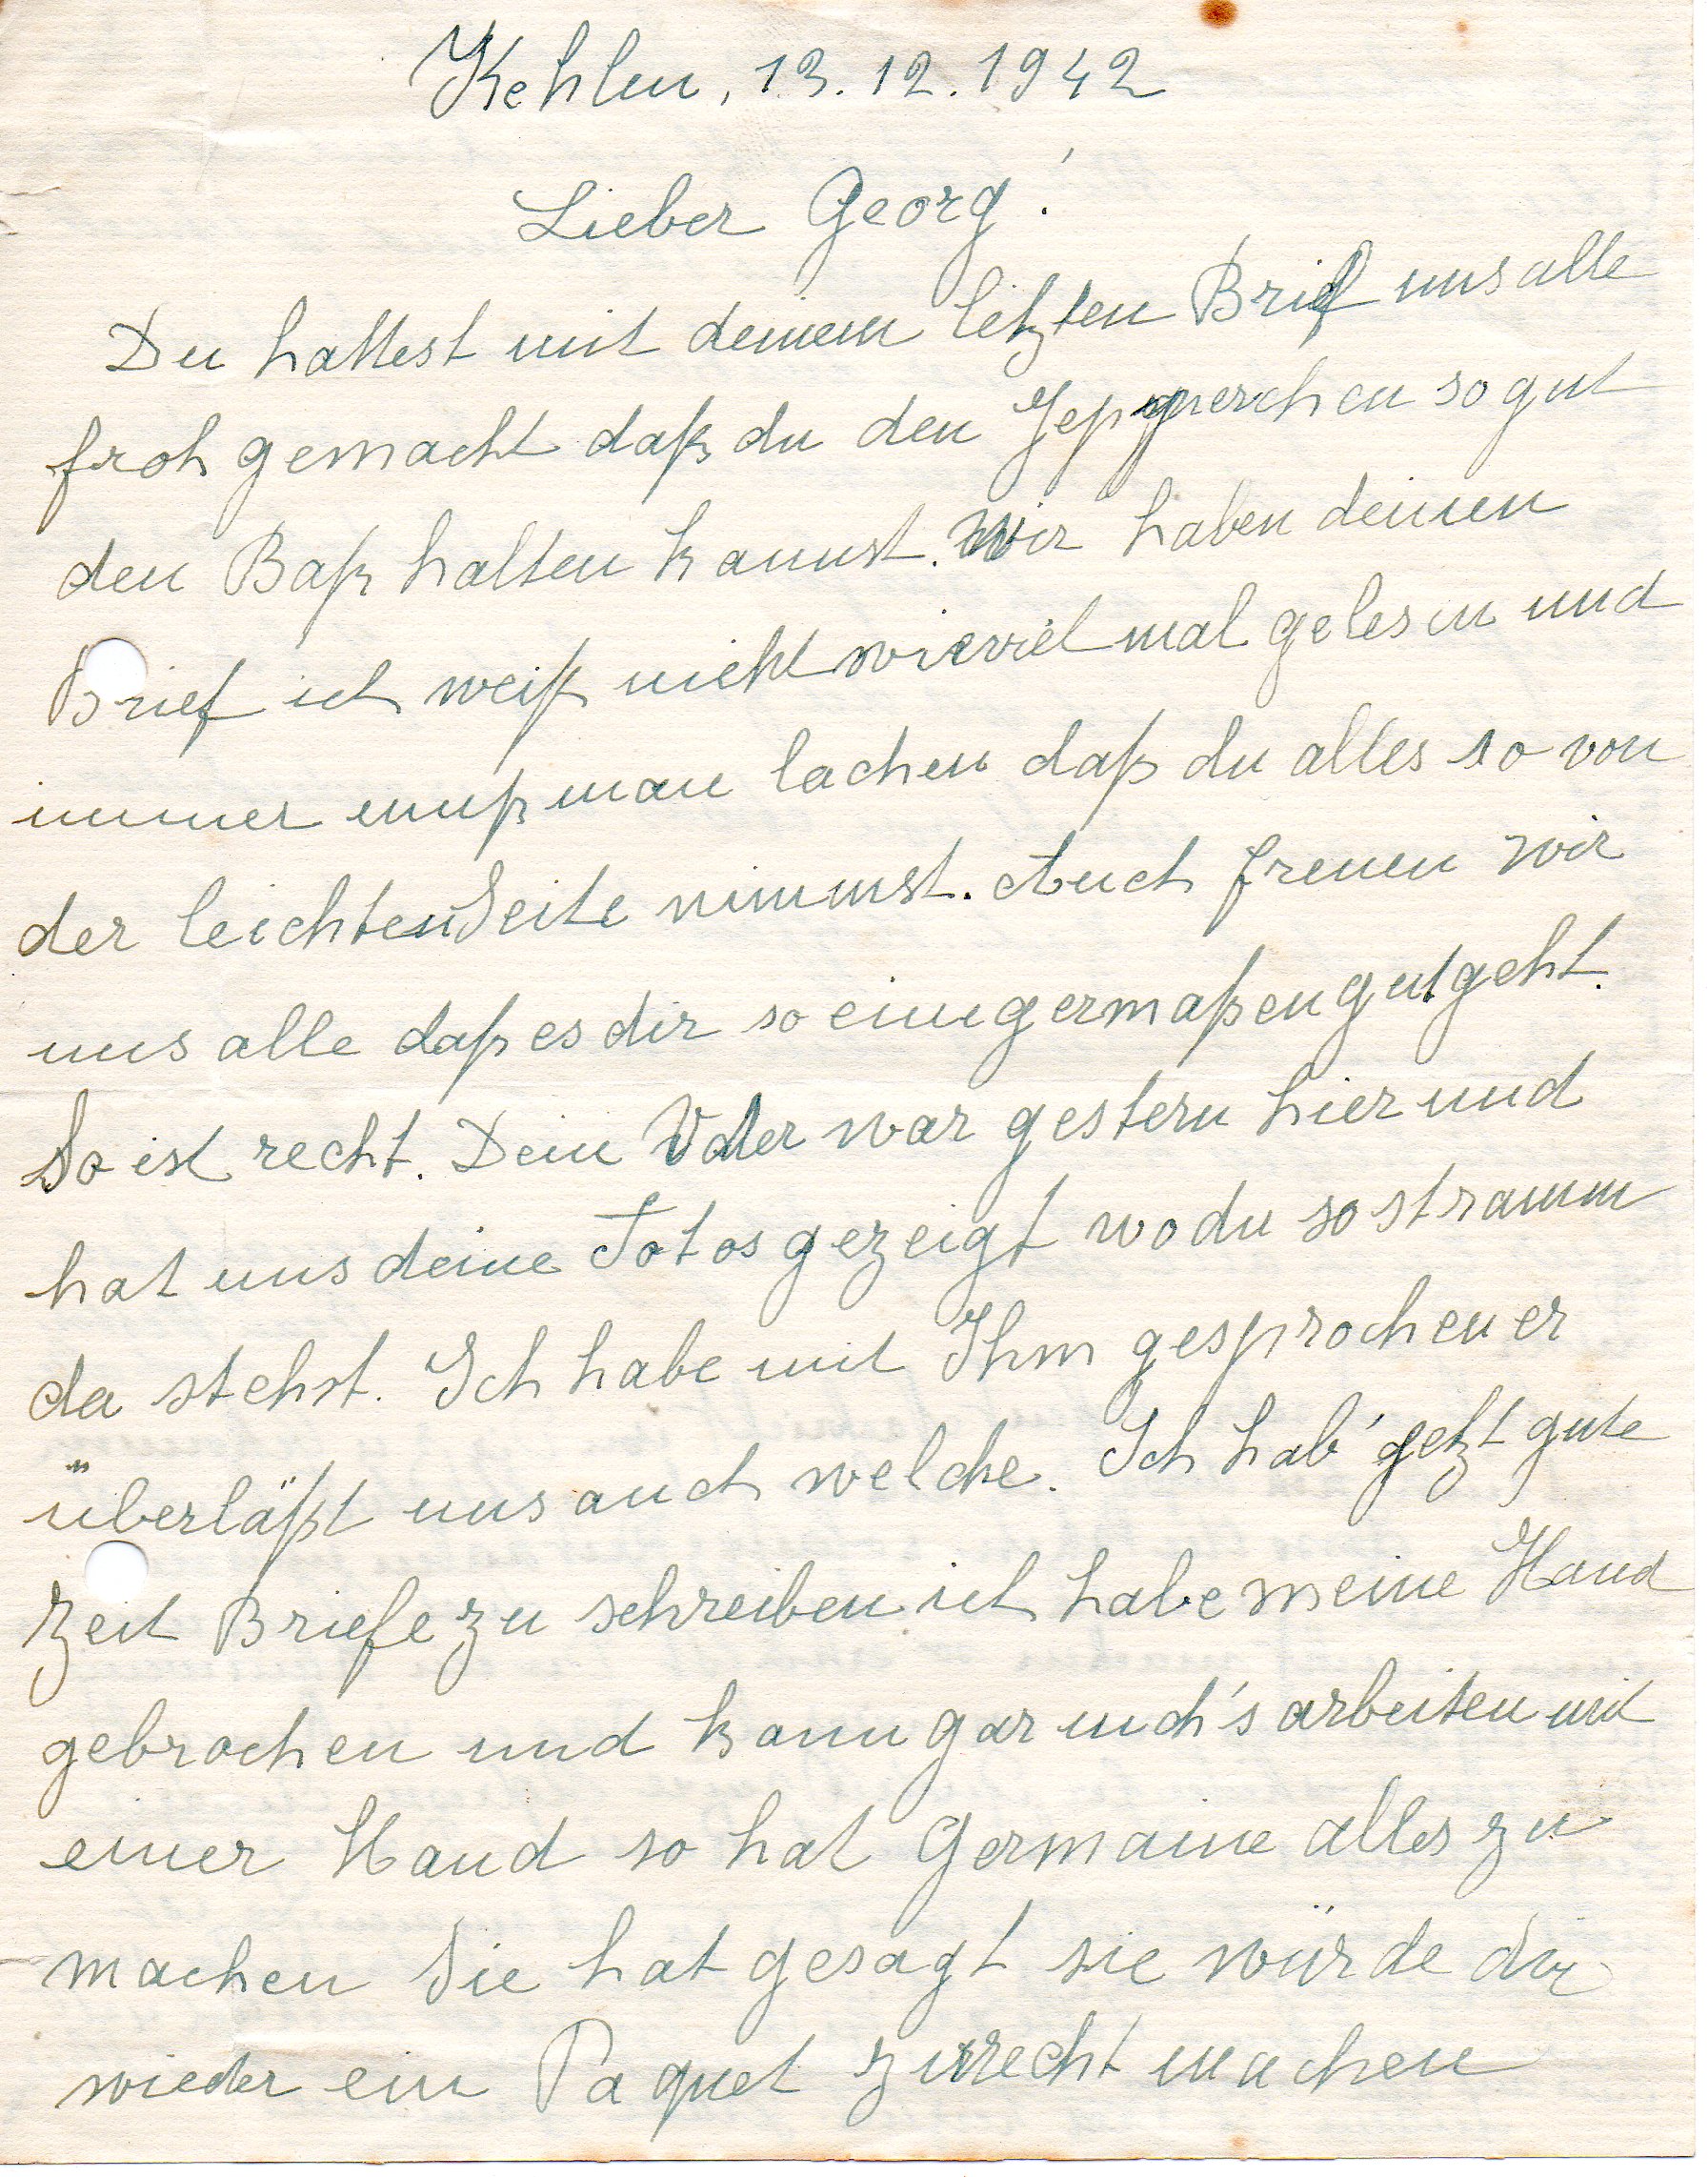 Kehlen, 13.12.1942
Lieber Georg!
Du hattest mit deinem letzten Brief uns alle
froh gemacht daß du den so gut
den Baß halten kannst. Wir haben deinen
Brief ich weiß nicht wieviel mal gelesen und
immer muß man lachen daß du alles so von
der leichten Seite nimmst. Auch freuen wir
uns alle daß es dir so einigermaßen gut geht.
So ist recht. Dein Vater war gestern hier und
hat uns deine Fotos gezeigt wo du so stramm
da stehst. Ich habe mit Ihm gesprochen er
überläßt uns auch welche. Ich hab' getzt gute
Zeit Briefe zu schreiben ich habe meine Hand
gebrochen und kann gar nich's arbeiten mit
einer Hand so hat Germaine alles zu
machen Sie hat gesagt sie würde dir
wieder ein Paquet zurecht machen